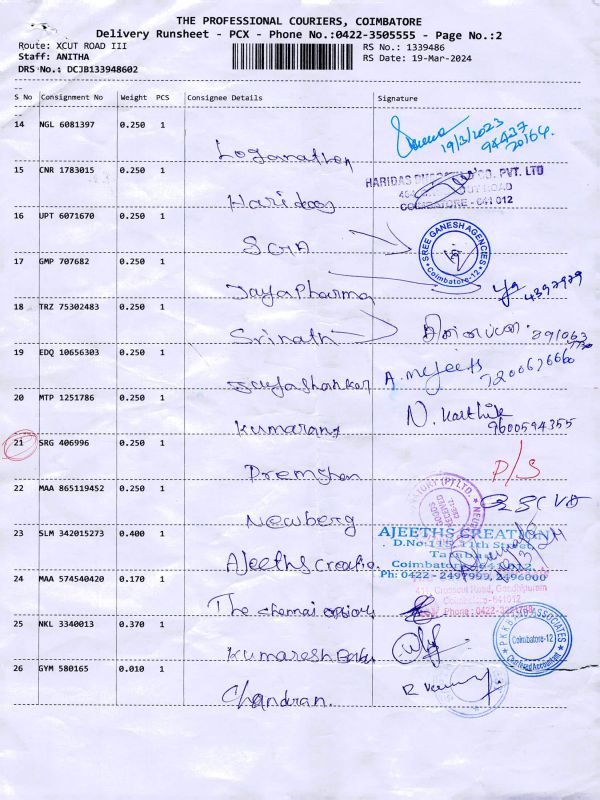 THE PROFESSIONAL COURIERS, COIMBATORE
Delivery Runsheet - PCX - Phone No.:0422-3505555 - Page No.:2
Route: XCUT ROAD III
RS No.: 1339486
Staff: ANITHA
RS Date: 19-Mar-2024
DRS No.: DCJB133948602
S No Consignment No Weight PCS Consignee Details Signature
14 NGL 6081397 0.250 1
19/3/2023
94437
20164
Loganathan
15 CNR 1783015 0.250 1
CO. PVT. LTD
COIMBATORE - 641 012
Haridas
16 UPT 6071670 0.250 1
SGA
SREE GANESH AGENCIES
Coimbatore-12
17 GMP 707682 0.250 1
4397979
Jaya Pharma
18 TRZ 75302483 0.250 1
Srinath
19 EDQ 10656303 0.250 1
A. Mejeets
7200676660
Jayashankar
20 MTP 1251786 0.250 1
N. Karthik
9600594355
Kumaran
21 SRG 406996 0.250 1
P/S
Premshan
22 MAA 865119452 0.250 1
Newberg
23 SLM 342015273 0.400 1
AJEETHS CREATION
D.No 115, 11th Street,
Coimbatore - 641012
Ph: 0422 - 2497999, 2496000
Ajeeths Creatio.
24 MAA 574540420 0.170 1
Cross Cut Road, Gandhipuram
Coimbatore-641012
The chennai opticals
25 NKL 3340013 0.370 1
P K K B AND ASSOCIATES
Coimbatore-12
Chartered Accountant
Kumaresh Babu
26 GYM 580165 0.010 1
Chandran.